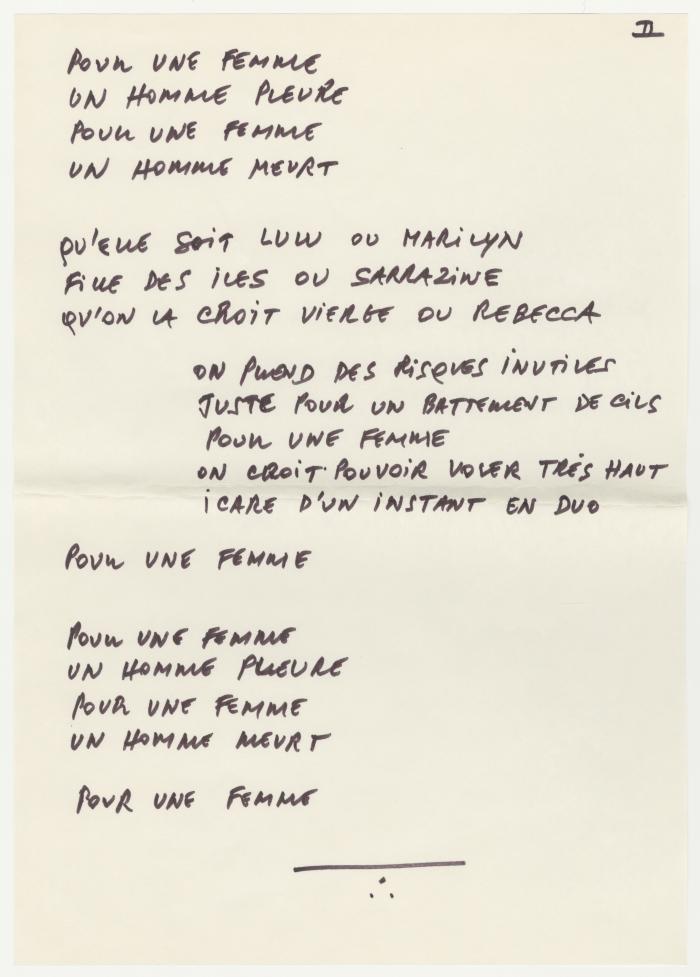 II
POUR UNE FEMME
UN HOMME PLEURE
POUR UNE FEMME
UN HOMME MEURT
QU'ELLE SOIT LULU OU MARILYN
FILLE DES ILES OU SARRAZINE
QU'ON LA CROIT VIERGE OU REBECCA
ON PREND DES RISQUES INUTILES
JUSTE POUR UN BATTEMENT DE CILS
POUR UNE FEMME
ON CROIT POUVOIR VOLER TRÈS HAUT
ICARE D'UN INSTANT EN DUO
POUR UNE FEMME
POUR UNE FEMME
UN HOMME PLEURE
POUR UNE FEMME
UN HOMME MEURT
POUR UNE FEMME